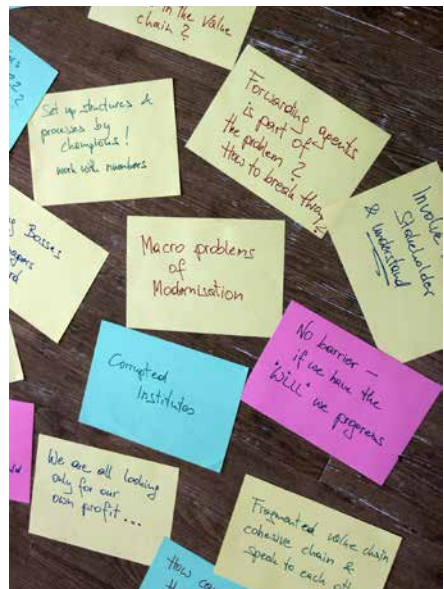 in the value
chain?
Set up structures &
processes by
champions!
work with numbers
Forwarding agents
is part of
the problem?
How to break throu
Involve
Stakeholder
& understand
Bosses
Macro problems
of
Modernisation
Corrupted
Institutes
No barrier —
if we have the
"Will" we progress
We are all looking
only for our
own profit...
Fragmented value chain
cohesive chain &
speak to each oth
How can